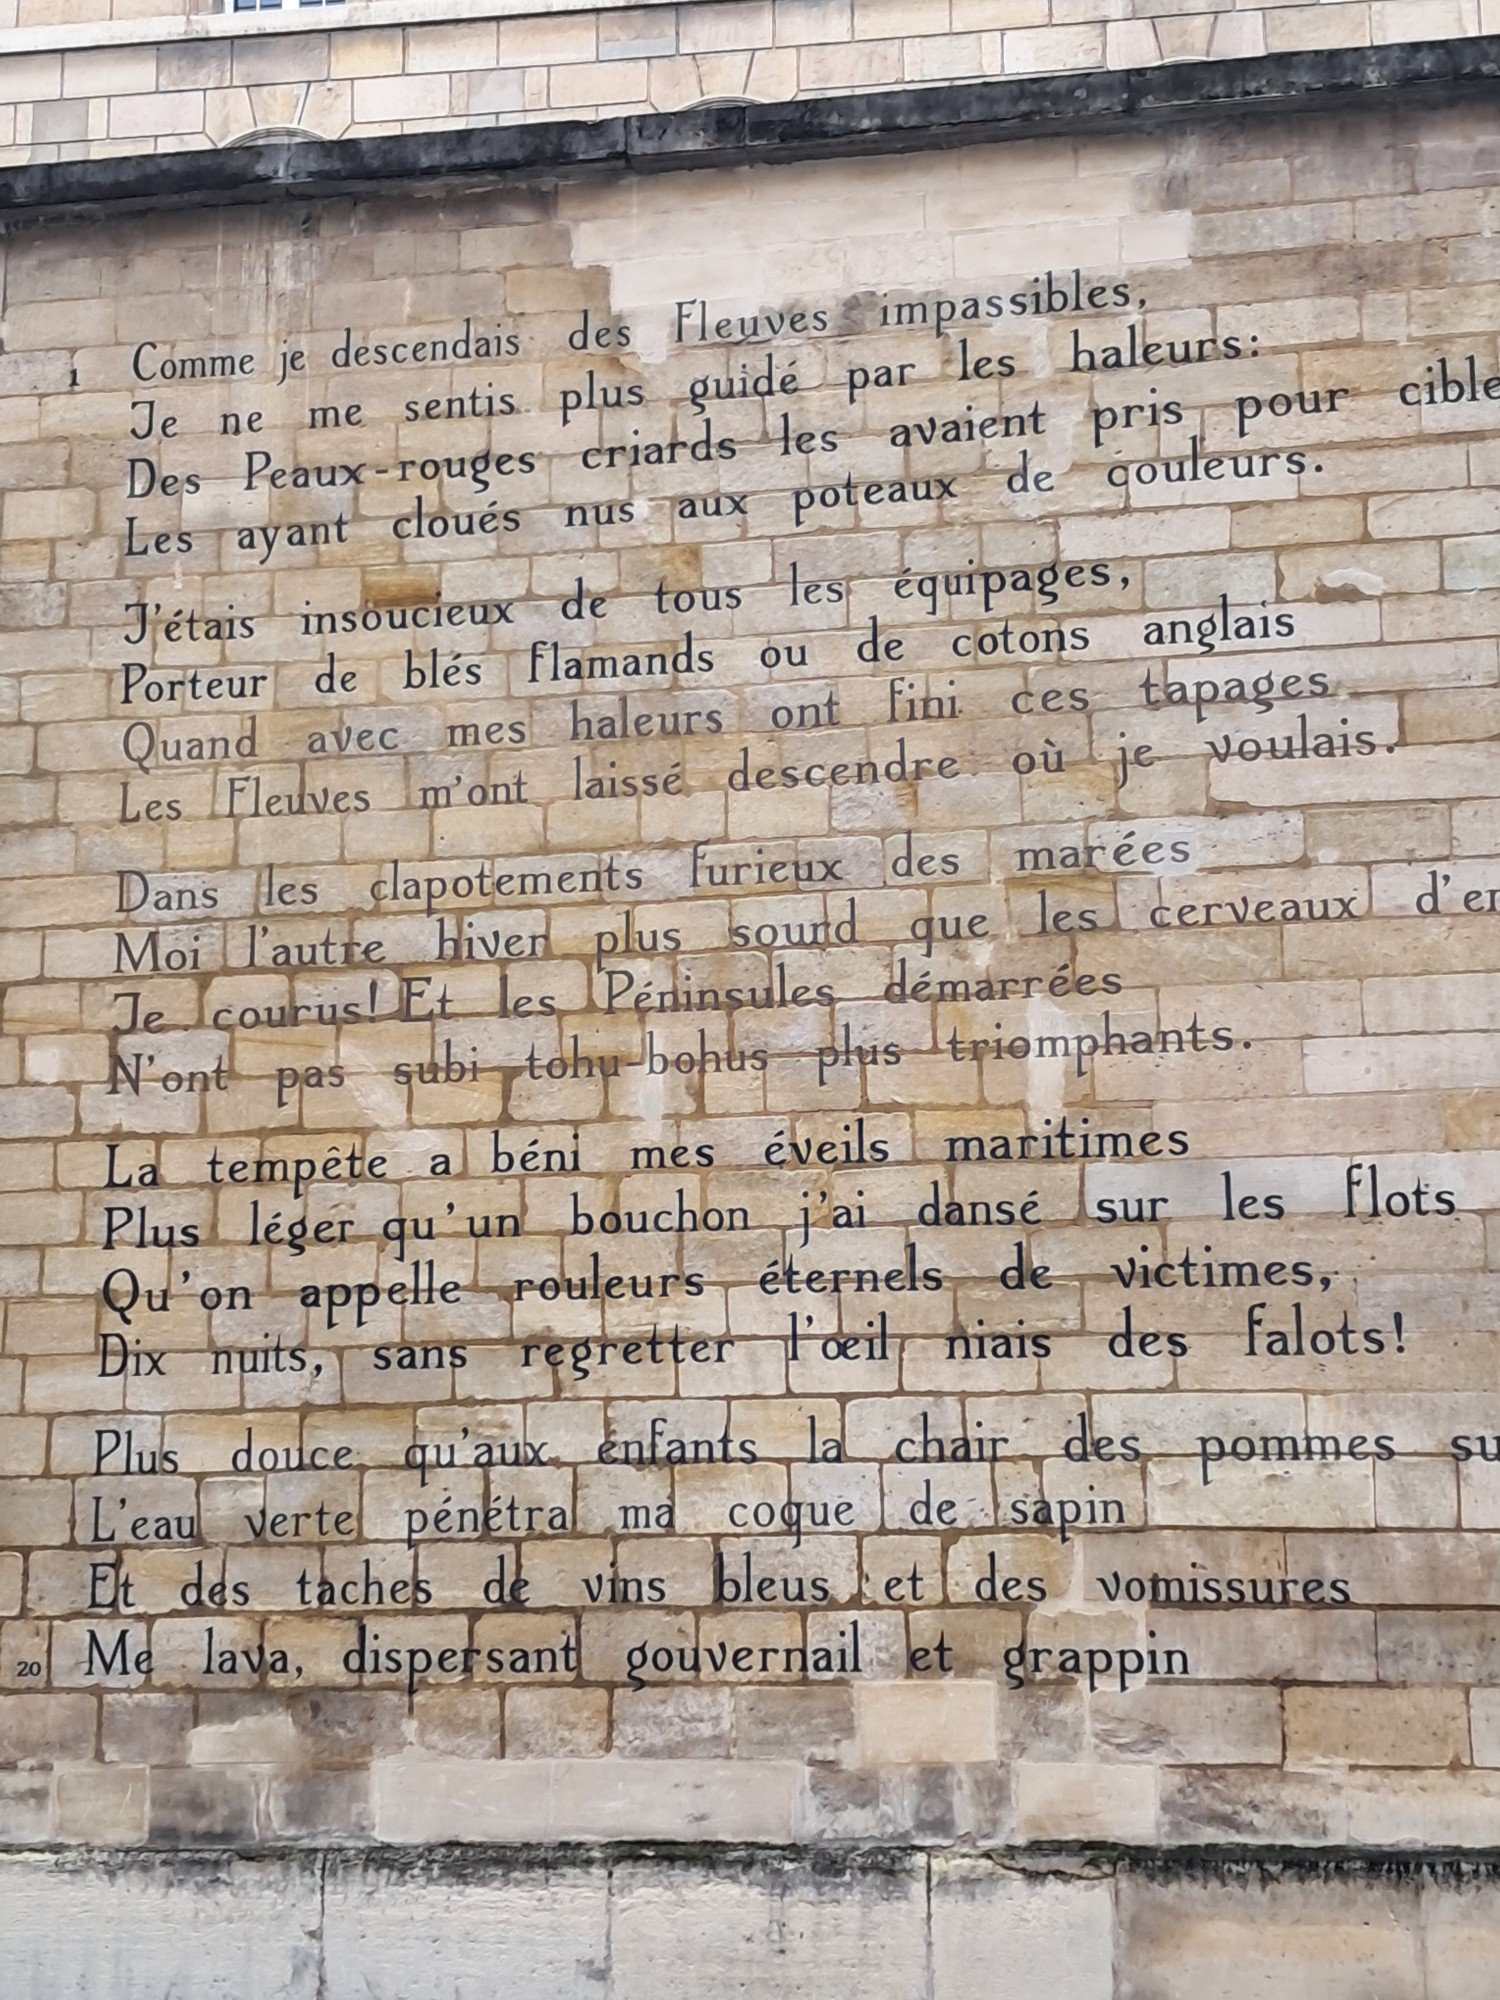 1 Comme je descendais des Fleuves impassibles,
Je ne me sentis plus guidé par les haleurs:
Des Peaux-rouges criards les avaient pris pour cible
Les ayant cloués nus aux poteaux de couleurs.
J'étais insoucieux de tous les équipages,
Porteur de blés flamands ou de cotons anglais
Quand avec mes haleurs ont fini ces tapages
Les Fleuves m'ont laissé descendre où je voulais.
Dans les clapotements furieux des marées
Moi l'autre hiver plus sourd que les cerveaux
Je courus! Et les Péninsules démarrées
N'ont pas subi tohu-bohus plus triomphants.
La tempête a béni mes éveils maritimes
Plus léger qu'un bouchon j'ai dansé sur les flots
Qu'on appelle rouleurs éternels de victimes,
Dix nuits, sans regretter l'œil niais des falots!
Plus douce qu'aux enfants la chair des pommes
L'eau verte pénétra ma coque de sapin
Et des taches de vins bleus et des vomissures
20 Me lava, dispersant gouvernail et grappin